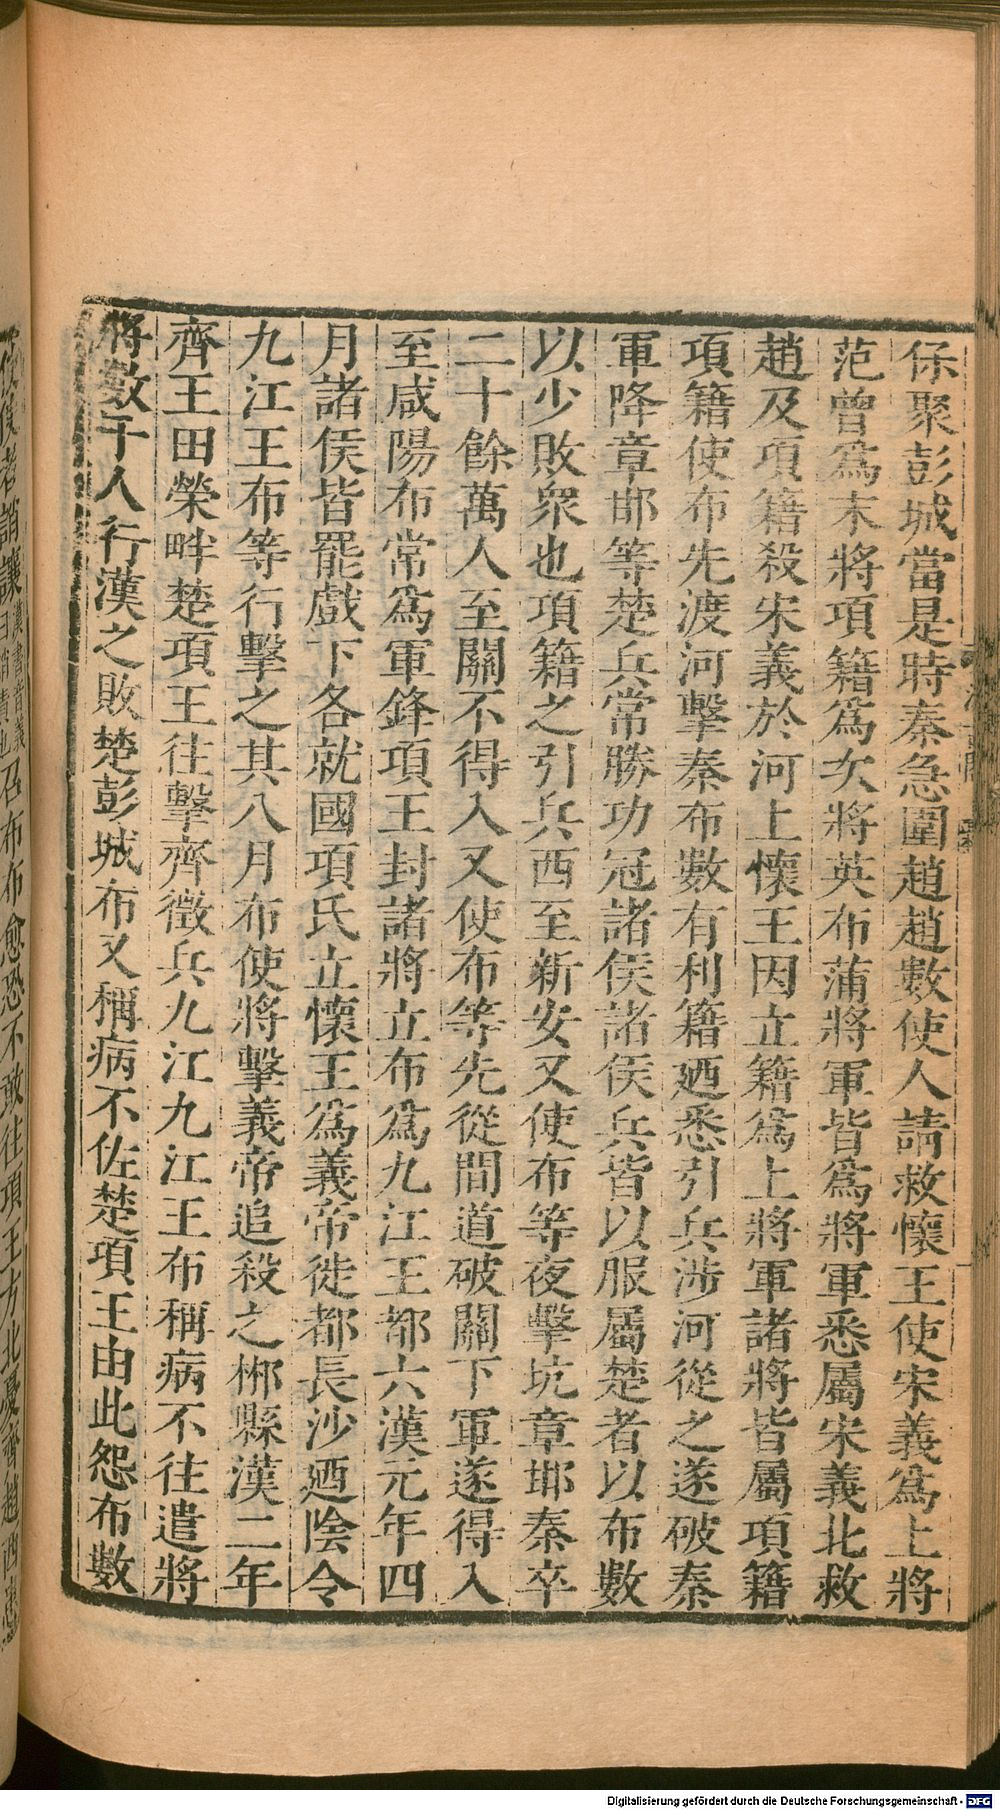 保聚彭城當是時秦急圍趙趙數使人請救懷王使宋義爲上將
范曾爲末將項籍爲次將英布蒲將軍皆爲將軍悉屬宋義北救
趙及項籍殺宋義於河上懷王因立籍爲上將軍諸將皆屬項籍
項籍使布先渡河擊秦布數有利籍廼悉引兵涉河從之遂破秦
軍降章邯等楚兵常勝功冠諸侯諸侯兵皆以服屬楚者以布數
以少敗衆也項籍之引兵西至新安又使布等夜擊坑章邯秦卒
二十餘萬人至關不得入又使布等先從間道破關下軍遂得入
至咸陽布常爲軍鋒項王封諸將立布爲九江王都六漢元年四
月諸侯皆罷戲下各就國項氏立懷王爲義帝徙都長沙廼陰令
九江王布等行擊之其八月布使將擊義帝追殺之郴縣漢二年
齊王田榮畔楚項王往擊齊徵兵九江九江王布稱病不往遣將
將數千人行漢之敗楚彭城布又稱病不佐楚項王由此怨布數
使使者誚讓漢書音義曰誚責也召布布愈恐不敢往項王方北憂齊趙西患
Digitalisierung gefördert durch die Deutsche Forschungsgemeinschaft - DFG